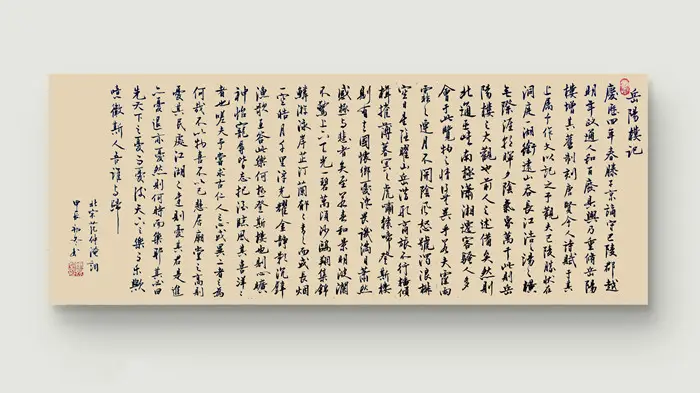 岳陽樓記
慶歷四年春滕子京謫守巴陵郡越
明年政通人和百廢具興乃重修岳陽
樓增其舊制刻唐賢今人詩賦于其
上屬予作文以記之予觀夫巴陵勝狀在
洞庭一湖銜遠山吞長江浩浩湯湯橫
無際涯朝暉夕陰氣象萬千此則岳
陽樓之大觀也前人之述備矣然則
北通巫峽南極瀟湘遷客騷人多
會于此覽物之情得無異乎若夫霪雨
霏霏連月不開陰風怒號濁浪排
空日星隱耀山岳潛形商旅不行檣傾
楫摧薄暮冥冥虎嘯猿啼登斯樓
則有去國懷鄉憂讒畏譏滿目蕭然
感極而悲者矣至若春和景明波瀾
不驚上下天光一碧萬頃沙鷗翔集錦
鱗游泳岸芷汀蘭郁郁青青而或長煙
一空皓月千里浮光耀金靜影沉璧
漁歌互答此樂何極登斯樓也則心曠
神怡寵辱皆忘把酒臨風其喜洋洋
者也嗟夫予嘗求古仁人之心或異二者之為
何哉不以物喜不以己悲居廟堂之高則
憂其民處江湖之遠則憂其君是進
亦憂退亦憂然則何時而樂耶其必曰
先天下之憂而憂後天下之樂而樂歟
噫微斯人吾誰與歸
北宋范仲淹詞
甲辰